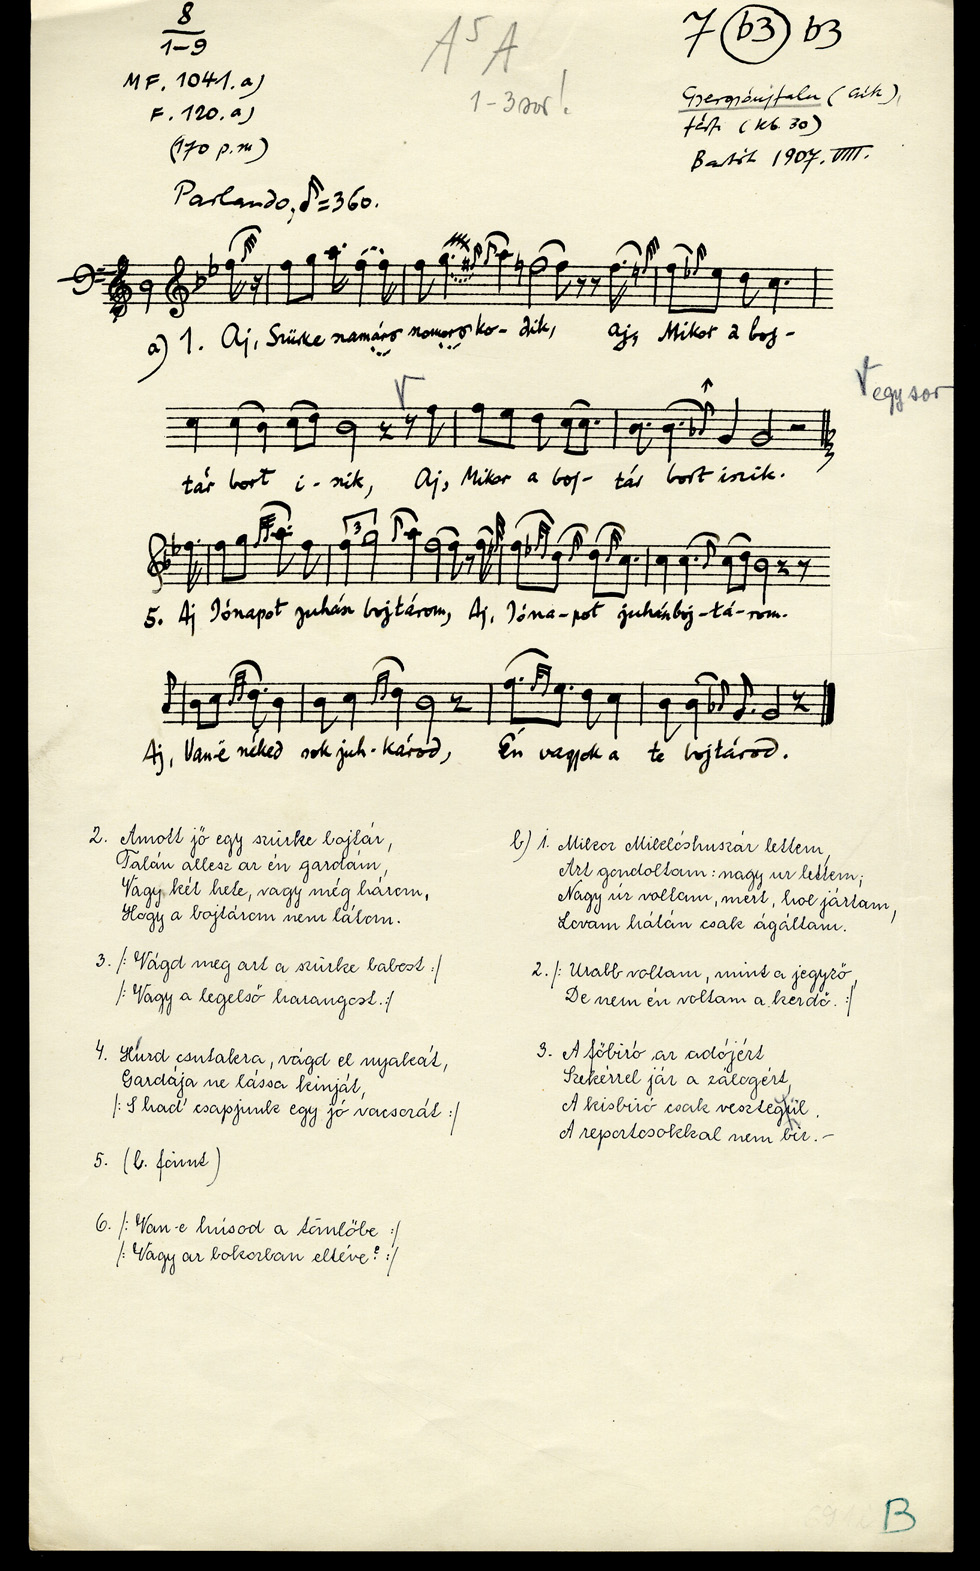 8
1-9
MF. 1041.a)
F. 120.a)
(170 p.m)
A⁵A
1-3 sor!
7 (b3) b3
Gyergyóújfalu (Csík),
férfi (kb. 30)
Bartók 1907. VIII.
Parlando, ♪=360.
a) 1. Aj, Szürke szamáro szomorko-dik, aj, Mikor a boj-
V
V egy sor
tár bort i-szik, Aj, Mikor a boj-tár bort iszik.
5. Aj Jónapot juhász bojtárom, Aj, Jóna-pot juhászboj-tá-rom.
Aj, Van-ë néked sok juh-károd, Én vagyok a te bojtárod.
2. Amott jő egy szürke bojtár,
Talán allesz az én gazdám,
Vagy két hete, vagy még három,
Hogy a bojtárom nem látom.
3. /: Vágd meg azt a szürke babost :/
/: Vagy a legelső harangost. :/
4. Húzd csutakra, vágd el nyakát,
Gazdája ne lássa kinját,
/: S had' csapjunk egy jó vacsorát :/
5. (l. fönnt)
6. /: Van-e húsod a tömlőbe :/
/: Vagy az bokorban eltéve? :/
b) 1. Mikor Miklóshuszár lettem,
Azt gondoltam: nagy ur lettem;
Nagy úr voltam, mert, hol jártam,
Lovam hátán csak ágáltam.
2. /: Urabb voltam, mint a jegyző,
De nem én voltam a kezdő. :/
3. A főbiró az adójért
Szekérrel jár a zálogért,
A kisbiró csak vesztegűl,
A reportcsokkal nem bir.-
B